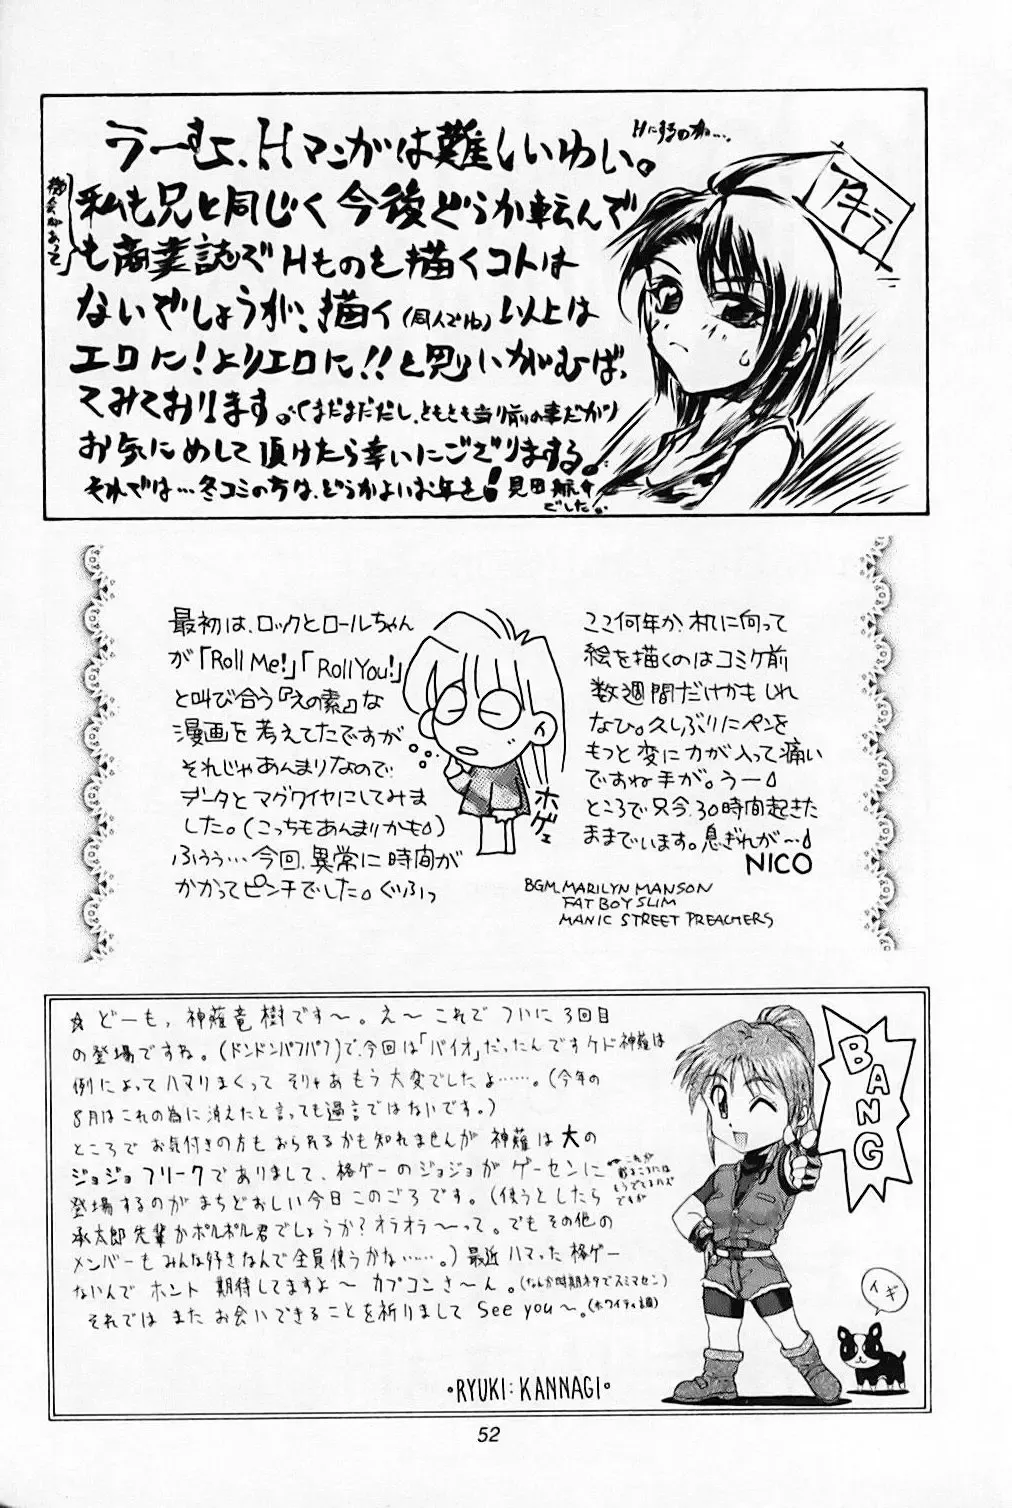 うーむ、Hマンガは難しいわい。
Hにするのが…
アキラ
私も兄と同じく今後どうか転んで
も商業誌でHものを描くコトは
機会があって
ないでしょうが、描く(同人でね)以上は
エロに!よりエロに!!と思いがむば、
てみております。(まだまだだし、ともとも当り前の事だが)
お気にめして頂けたら幸いにござりまする。
それでは…冬コミの方は、どうかよいお年を!
でした。
最初は、ロックとロールちゃん
が「Roll Me!」「Roll You!」
と叫び合う『えの素』な
漫画を考えてたですが
それじゃあんまりなので
データとマグワイヤにしてみま
した。(こっちもあんまりかも)
ふぅぅ…今回、異常に時間が
かかってピンチでした。ぐふっ
ホゲェ
ここ何年か、机に向って
絵を描くのはコミケ前
数週間だけかもしれ
なひ。久しぶりにペンを
もっと変に力が入って痛い
ですね手が。うー
ところで只今、30時間起きた
ままでいます。息ぎれが〜
NICO
BGM. MARILYN MANSON
FAT BOY SLIM
MANIC STREET PREACHERS
☆どーも、神薙竜樹です〜。え〜これでついに3回目
の登場ですね。(ドンドンパフパフ)で、今回は「バイオ」だったんですケド神薙は
例によってハマりまくってそりゃあもう大変でしたよ……。(今年の
8月はこれの為に消えたと言っても過言ではないです。)
ところでお気付きの方もおられるかも知れませんが神薙は大の
ジョジョフリークでありまして、格ゲーのジョジョがゲーセンに
登場するのがまちどおしい今日このごろです。(使うとしたら
←これが出るころにはもうでてるハズですが
承太郎先輩かポルポル君でしょうか?オラオラ〜って。でもその他の
メンバーもみんな好きなんで全員使うかな……。)最近ハマった格ゲー
ないんでホント期待してますよ〜カプコンさ〜ん。(なんか時期ネタでスミマセン)
それではまたお会いできることを祈りまして See you〜。(ホワイティ調)
BANG
イギ
・RYUKI:KANNAGI・
52